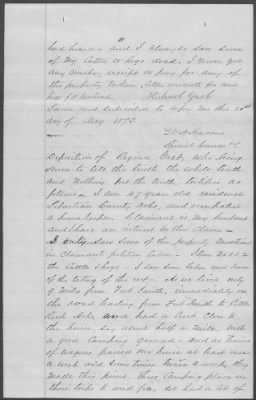 had heard - and I always saw some
of my Cattle or hogs dead. I never got
any voucher receipt or pay for any of
this property taken,
Michael Grob
Sworn and subscribed to before me this 20th
day of May 1873.
Special Commr
Deposition of Regina Grob, who being
sworn to tell the truth the whole truth
and nothing but the truth testifies as
follows - I am 47 years old residence
Sebastian County Arks, and occupation
a house keeper. Claimant is my husband
and I have an interest in this Claim -
I only saw some of the property mentioned
in claimant's petition taken - Item No 1 & 2
the Cattle & hogs. I saw some taken and some
of the taking of the rest - As we lived only
9 miles from Fort Smith, immediately on
the road leading from Fort Smith to Little
Rock Arks, and had a and close to
the house, say about half a mile, with
a good Camping ground - and as trains
of wagons passed our house at least once
a week and sometimes twice a week, they
made this point their Camping place in
their trips to and fro, we had a lot of